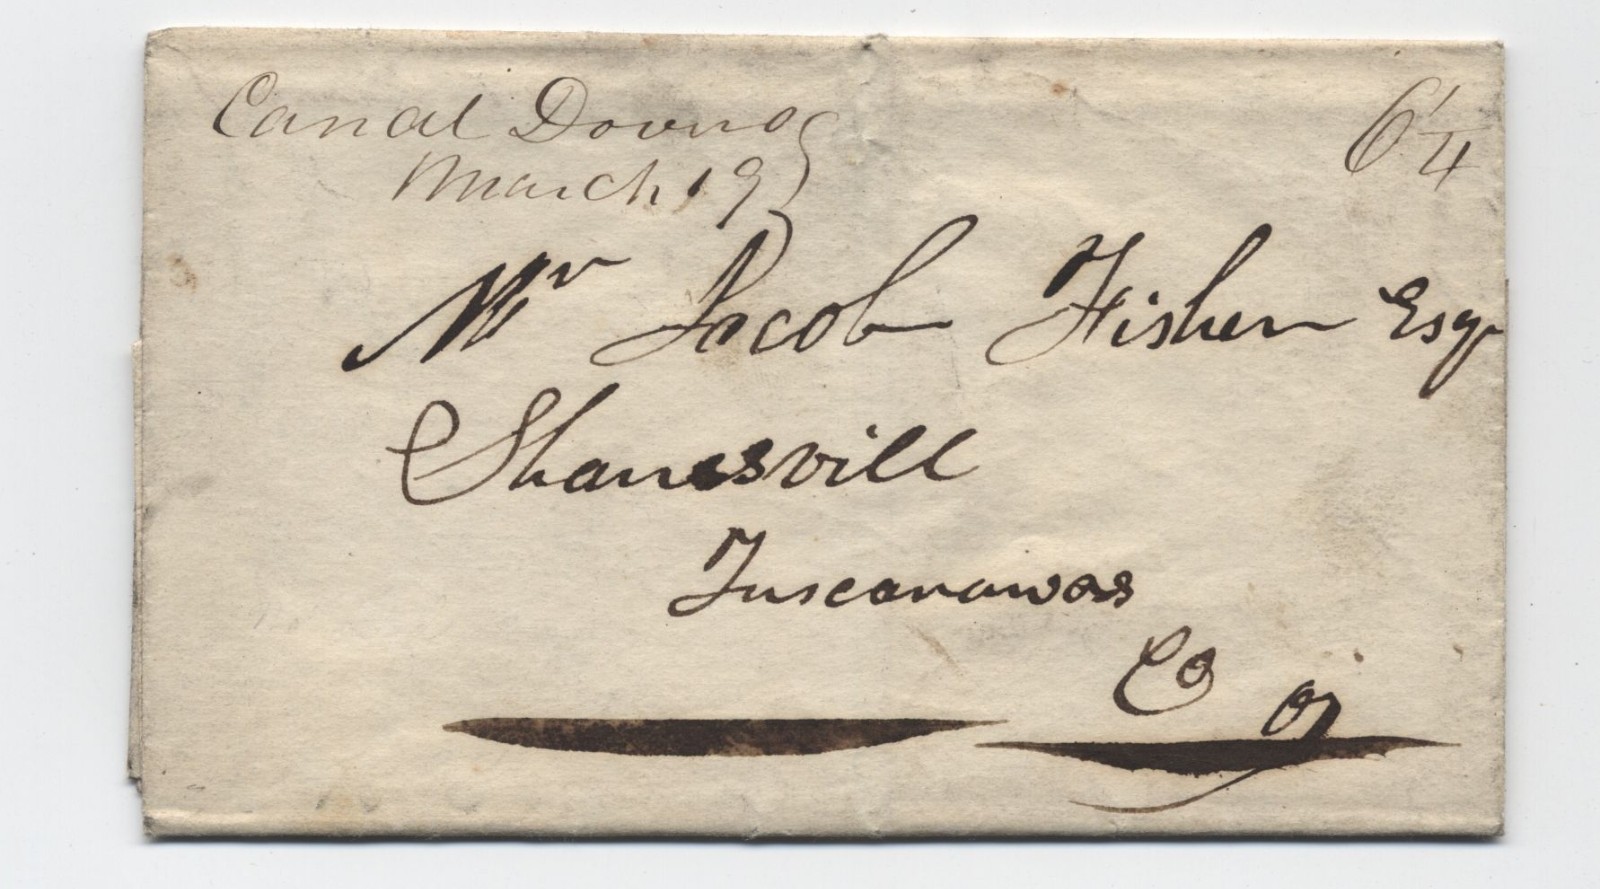 Canal Dover O
March 19
6 1/4
Mr Jacob Fisher Esqr
Shanesvill
Tuscarawas
Co